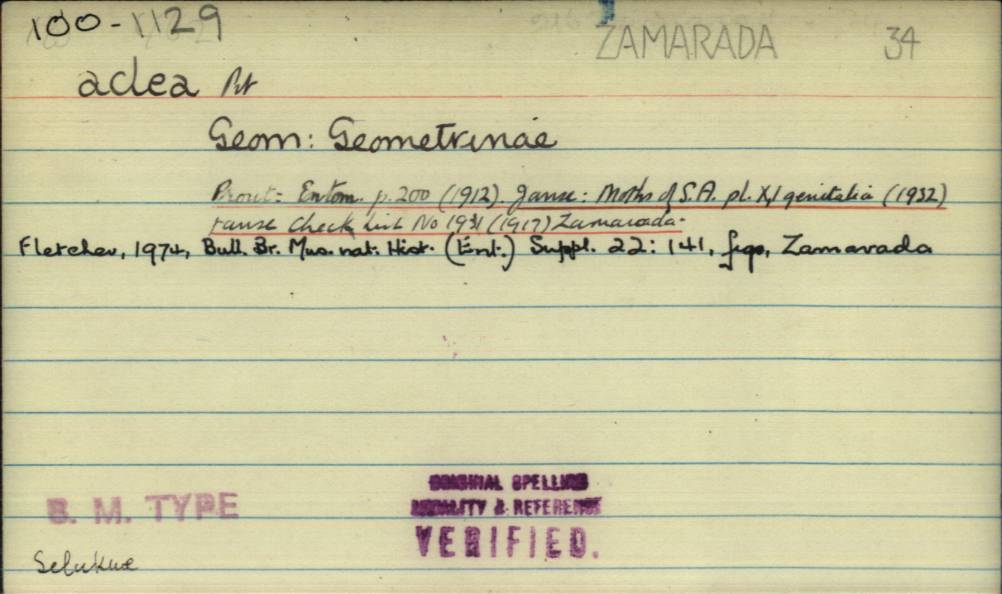 100-1129
ZAMARADA 34
aclea Prt
Geom: Geometrinae
Prout: Entom. p. 200 (1912). Janse: Moths of S.A. pl. XI genitalia (1932)
Janse Check List No 1931 (1917) Zamarada.
Fletcher, 1974, Bull. Br. Mus. nat. Hist. (Ent.) Suppl. 22: 141, figs, Zamarada
ORIGINAL SPELLING
LOCALITY & REFERENCE
B. M. TYPE
VERIFIED.
Selukwe